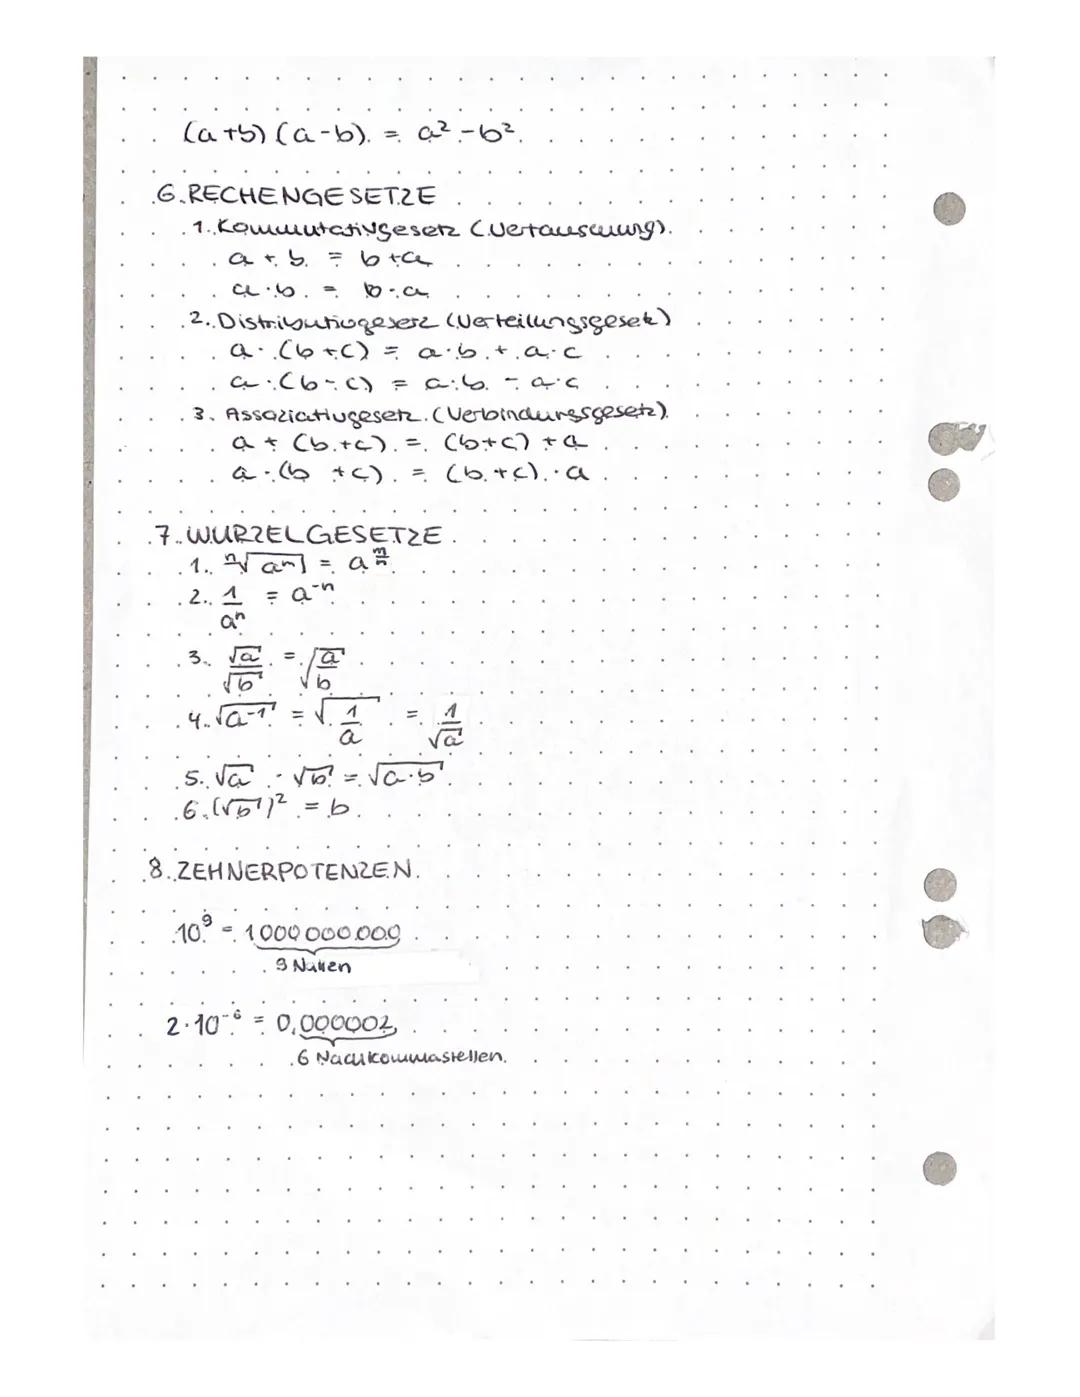 (a+b) (a-b) = a² - b²
6. RECHENGESETZE
1. Kommutativgesetz (Vertauschung)
a + b = b + a
a · b = b · a
2. Distributivgesetz (Verteilungsgesetz)
a · (b + c) = a · b + a · c
a · (b - c) = a · b - a · c
3. Assoziativgesetz (Verbindungsgesetz)
a + (b + c) = (b + c) + a
a · (b + c) = (b + c) · a
7. WURZELGESETZE
1. ⁿ√(aᵐ) = a^(m/n)
2. 1/aⁿ = a⁻ⁿ
3. √a/√b = √(a/b)
4. √(a⁻¹) = √(1/a) = 1/√a
5. √a · √b = √(a · b)
6. (√b)² = b
8. ZEHNERPOTENZEN
10⁹ = 1 000 000 000
9 Nullen
2 · 10⁻⁶ = 0,000002
6 Nachkommastellen